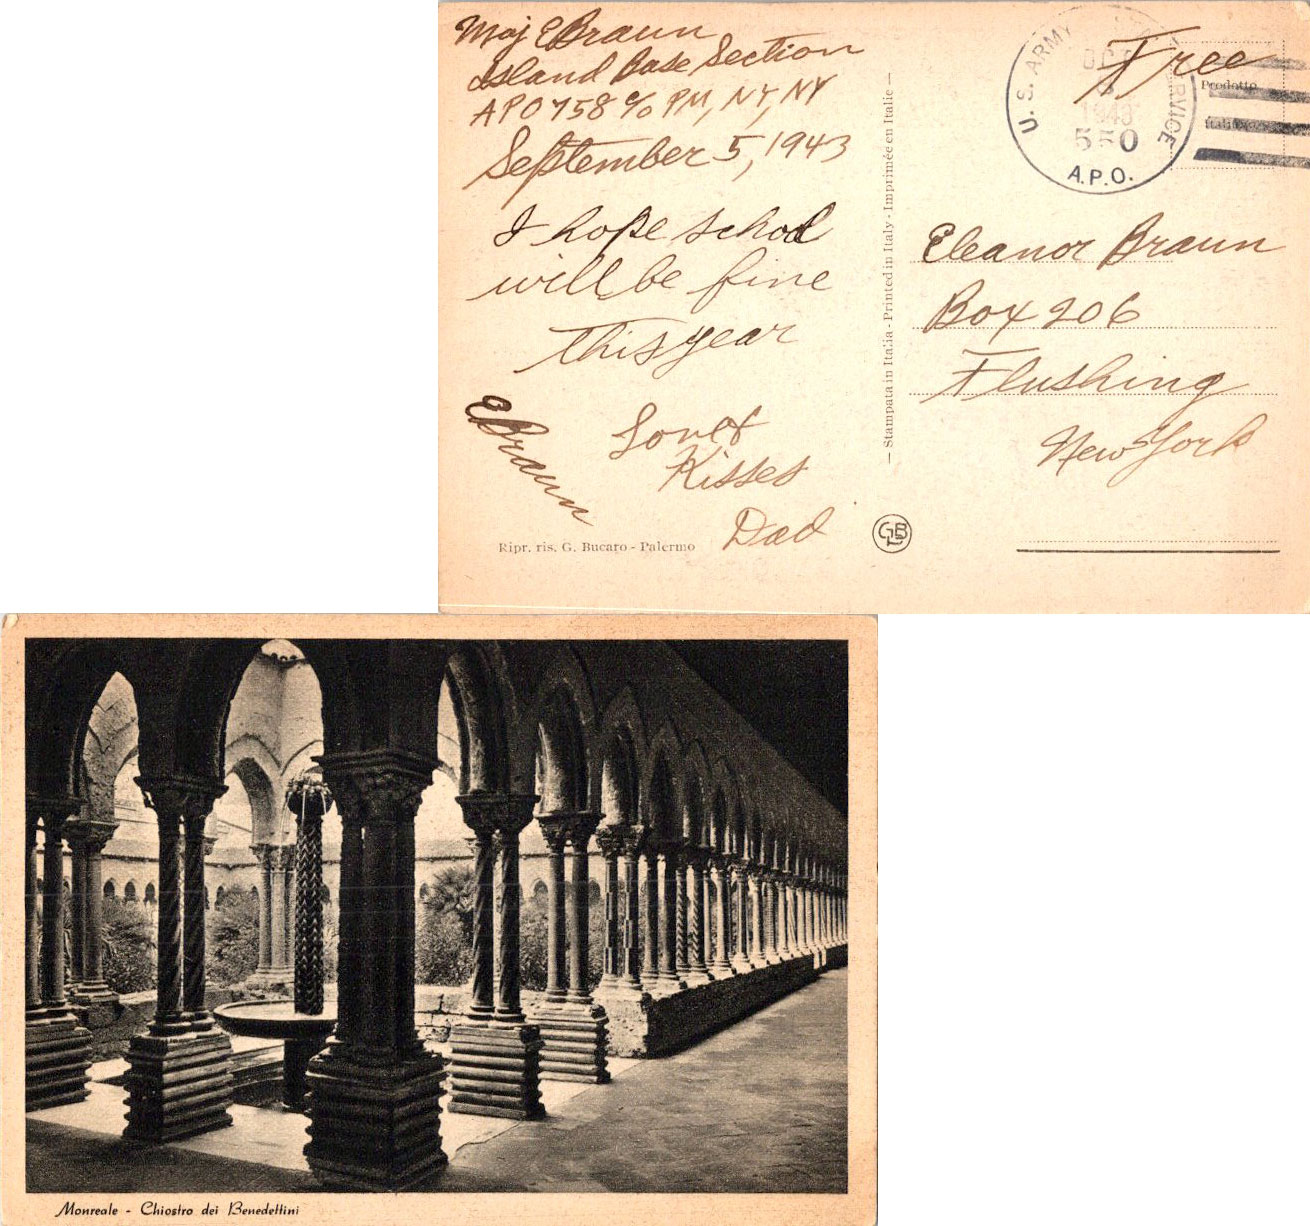 Maj E Braun
Island Base Section
APO 758 c/o PM, NY, NY
September 5, 1943
I hope school
will be fine
this year
Love &
Kisses
Dad
E Braun
Ripr. ris. G. Bucaro - Palermo
— Stampata in Italia - Printed in Italy - Imprimée en Italie —
GBL
U. S. ARMY SERVICE
1943
550
A.P.O.
Free
Prodotto
Eleanor Braun
Box 206
Flushing
New York
Monreale - Chiostro dei Benedettini